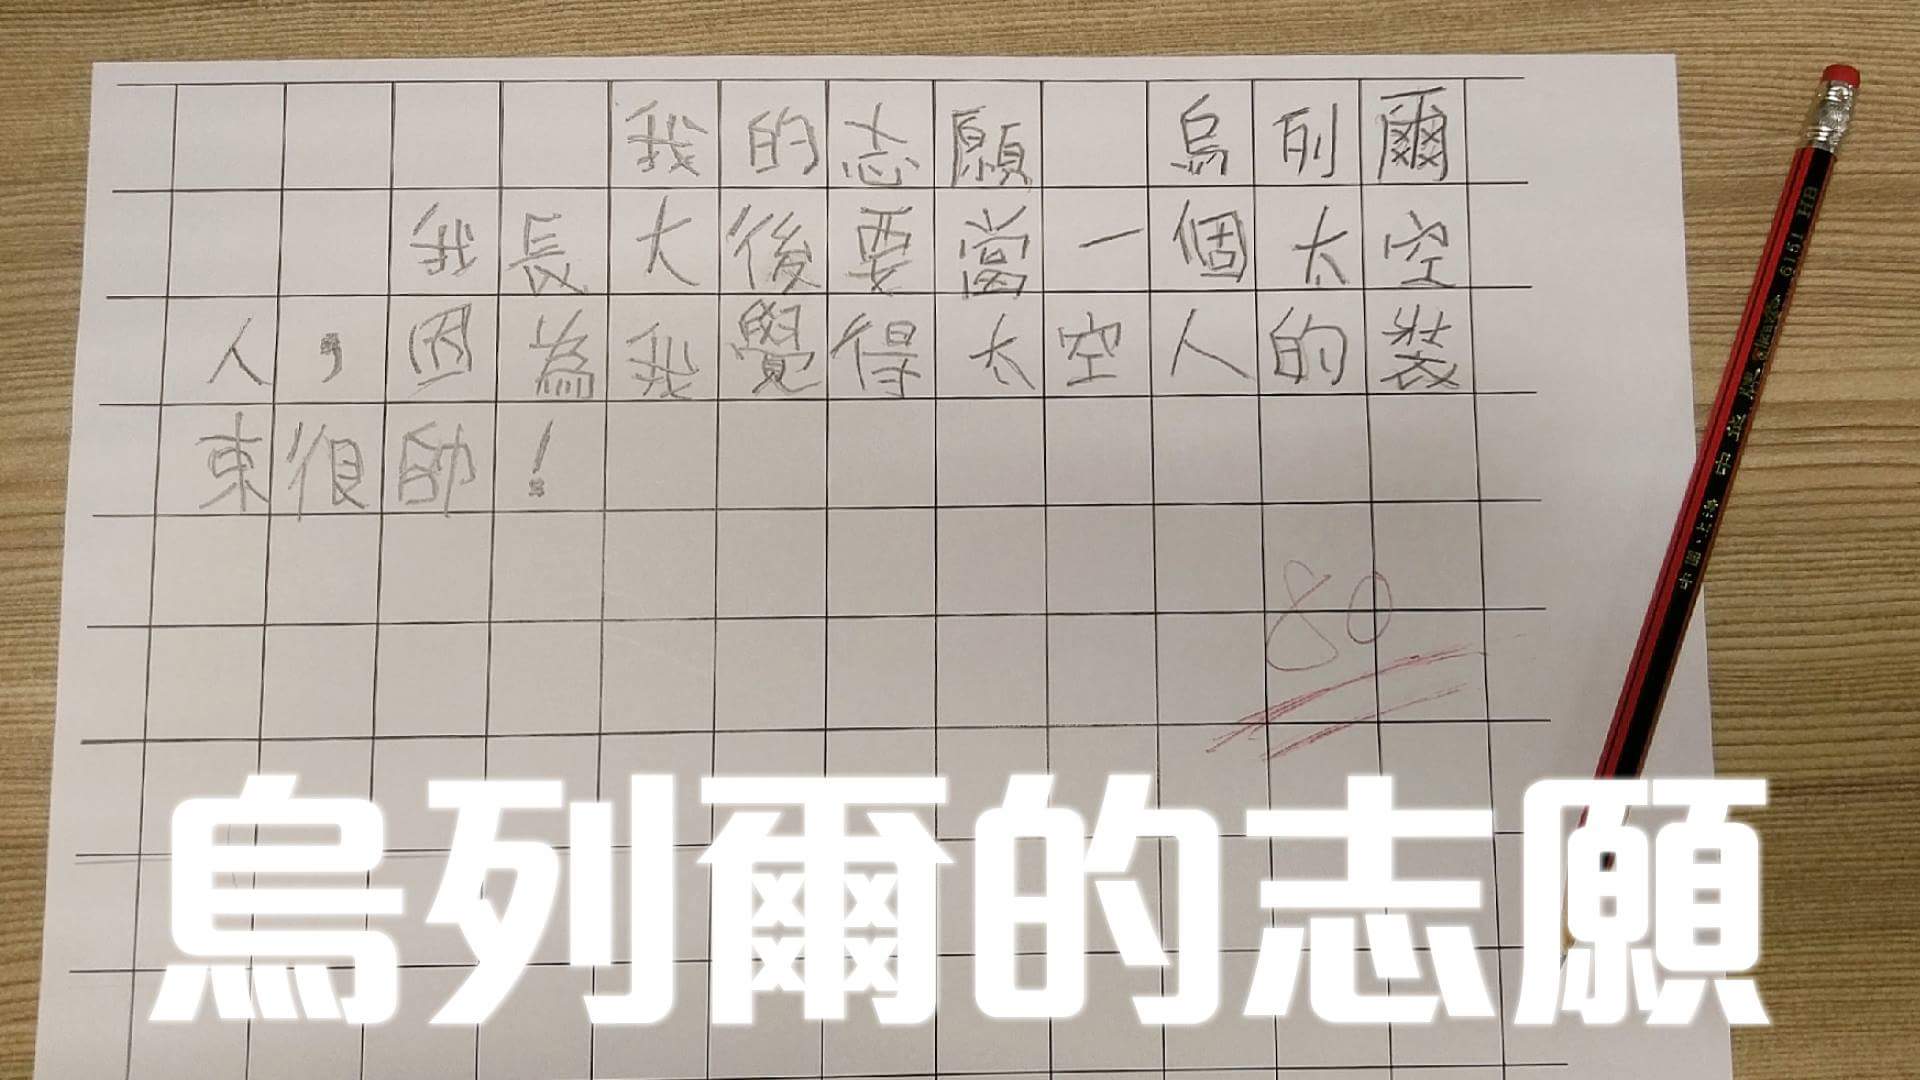 我的志願 烏列爾
我長大後要當一個太空
人，因為我覺得太空人的裝
束很帥！
80
烏列爾的志願
中國·上海 中华牌 6151 HB